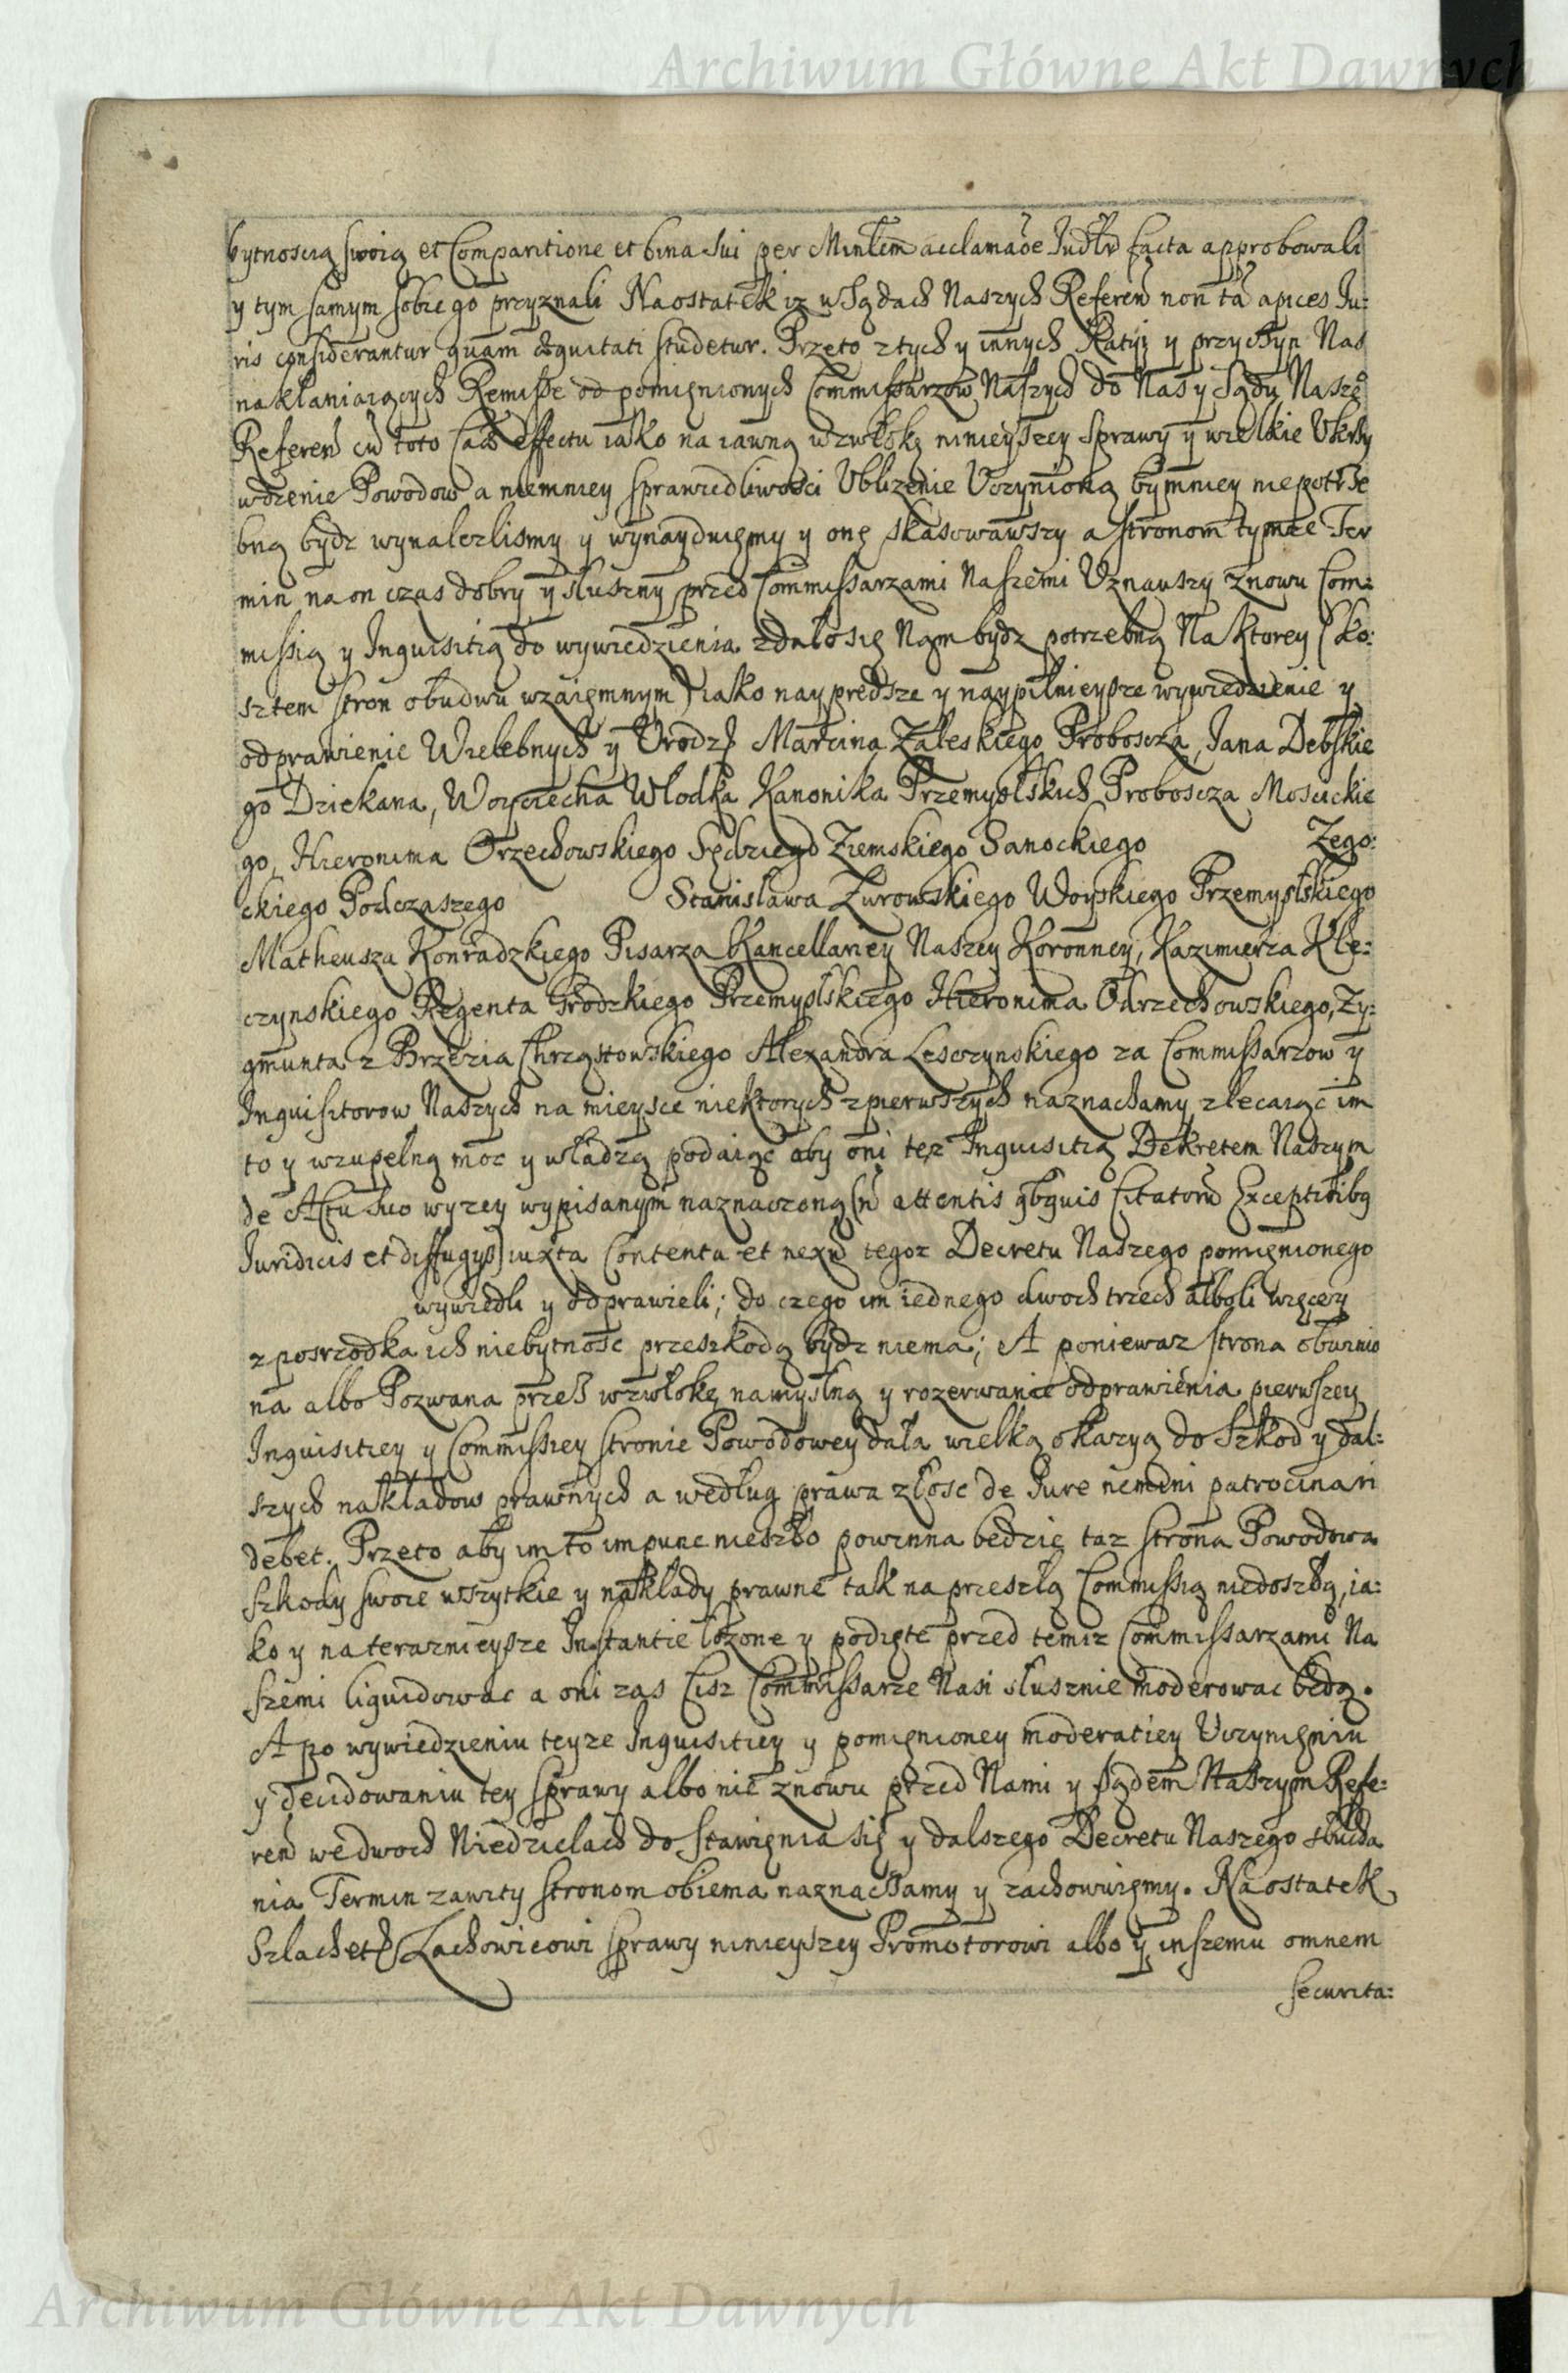 Archiwum Główne Akt Dawnych
bytnoscią swoią et Comparitione et bina sui per Minlem acclamaõe Judłr facta approbowali
y tym samym sobie go przyznali Naostatek iz w Sądach Naszych Referen non tã apices Ju:
ris considerantur quam æquitati studetur. Przeto z tych y innych Ratyi y przyczyn Nas
nakłaniaiących Remisse od pomięnionych Commissarzow Naszych do Nas y Sądu Nasze
Referen cũ toto Effectu iako na iawną wzwłokę ninieyszey Sprawy y wielkie Ukrzy
wdzenie Powodow a niemniey sprawiedliwosci Ublizenie Uczynioną bynmniey niepotrze
bną bydz wynalezlismy y wynayduięmy y onę skasowawszy a stronom tymze Ter
min na on czas dobry y słuszny przed Commissarzami Naszemi Uznawszy znowu Com:
missią y Inquisitią do wywiedzienia zdało się Nąm bydz potrzebną Na ktorey (ko:
sztem stron obudwu wzaięmnym) iako nayprędsze y naypilnieysze wywiedzienie y
odprawienie Wielebnych y Urodz Marcina Zaleskiego Proboscza, Jana Debskie
go Dziekana, Woyciecha Włodka Kanonika Przemyslskich Proboscza Moscickie
go, Hieronima Orzechowskiego Sędziego Ziemskiego Sanockiego Zego:
ckiego Podczaszego Stanisława Zurowskiego Woyskiego Przemyslskiego
Matheusza Konradzkiego Pisarza Kancellariey Naszey Koronney, Kazimierza Kle:
czynskiego Regenta Grodzkiego Przemyslskiego Hieronima Orzechowskiego, Zy:
gmunta z Brzezia Chrząstowskiego Alexandra Lesczynskiego za Commissarzow y
Inquisitorow Naszych na mieysce niektorych z pierwszych naznaczamy zlecaiąc im
to y wzupełną moc y władzą podaiąc aby oni tęz Inquisitią Dekretem Naszym
de Actu suo wyzey wypisanym naznaczoną (ñ attentis qbquis Citatorũ Exceptiõibq
Juridicis et diffugys) iuxta Contenta et nexũ tegoz Decretu Naszego pomięnionego
wywiedli y odprawieli; do czego im iednego dwoch trzech alboli więcey
z posrzodka ich niebytnosc przeszkodą bydz niema; A poniewaz strona obwinio
na albo Pozwana przez wzwłokę namyslną y rozerwanie odprawienia pierwszey
Inquisitiey y Commissiey stronie Powodowey dała wielką okazyą do Szkod y dal:
szych nakładow prawnych a według prawa złosc de Jure nemini patrocinari
debet. Przeto aby im to impune nieszło powinna będzie taz strona Powodowa
Szkody swoie wszytkie y nakłady prawne tak na przeszłą Commissią niedoszłą, ia:
ko y na teraznieysze Instantie łozone y podięte przed temiz Commissarzami Na
szemi liquidowac a oni zas Cisz Commissarze Nasi słusznie moderowac będą.
A po wywiedzieniu teyze Inquisitiey y pomięnioney moderatiey Uczynięniu
y decidowaniu tey sprawy albo nie znowu przed Nami y sądem Naszym Refe:
ren we dwoch Niedzielach do stawięnia się y dalszego Decretu Naszego słucha
nia Termin zawity stronom obiema naznaczamy y zachowuięmy. Naostatek
Szlachet Lachowicowi sprawy ninieyszey Promotorowi albo y inszemu omnem
securita:
Archiwum Główne Akt Dawnych